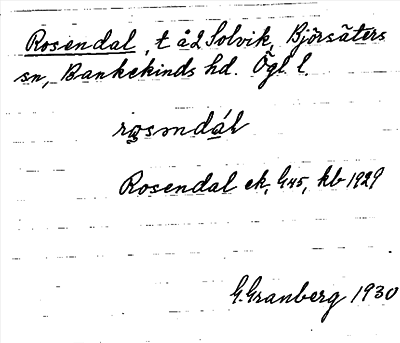 Rosendal, t å2 Solvik, Björsäters
sn, Bankekinds hd. Ögl l.
rosəndál
Rosendal ek, G45, kb 1929
G. Granberg 1930